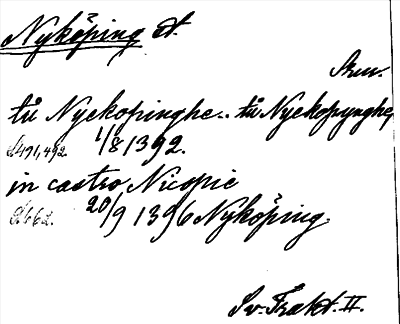 Nyköping st.
Skru.
tŭ Nyekopinghe.. tŭ Nyekopynghe,
S491,492. 1/8 1392.
in castro Nicopie
S662. 20/9 1396 Nyköping.
Sv. Trakt. II.